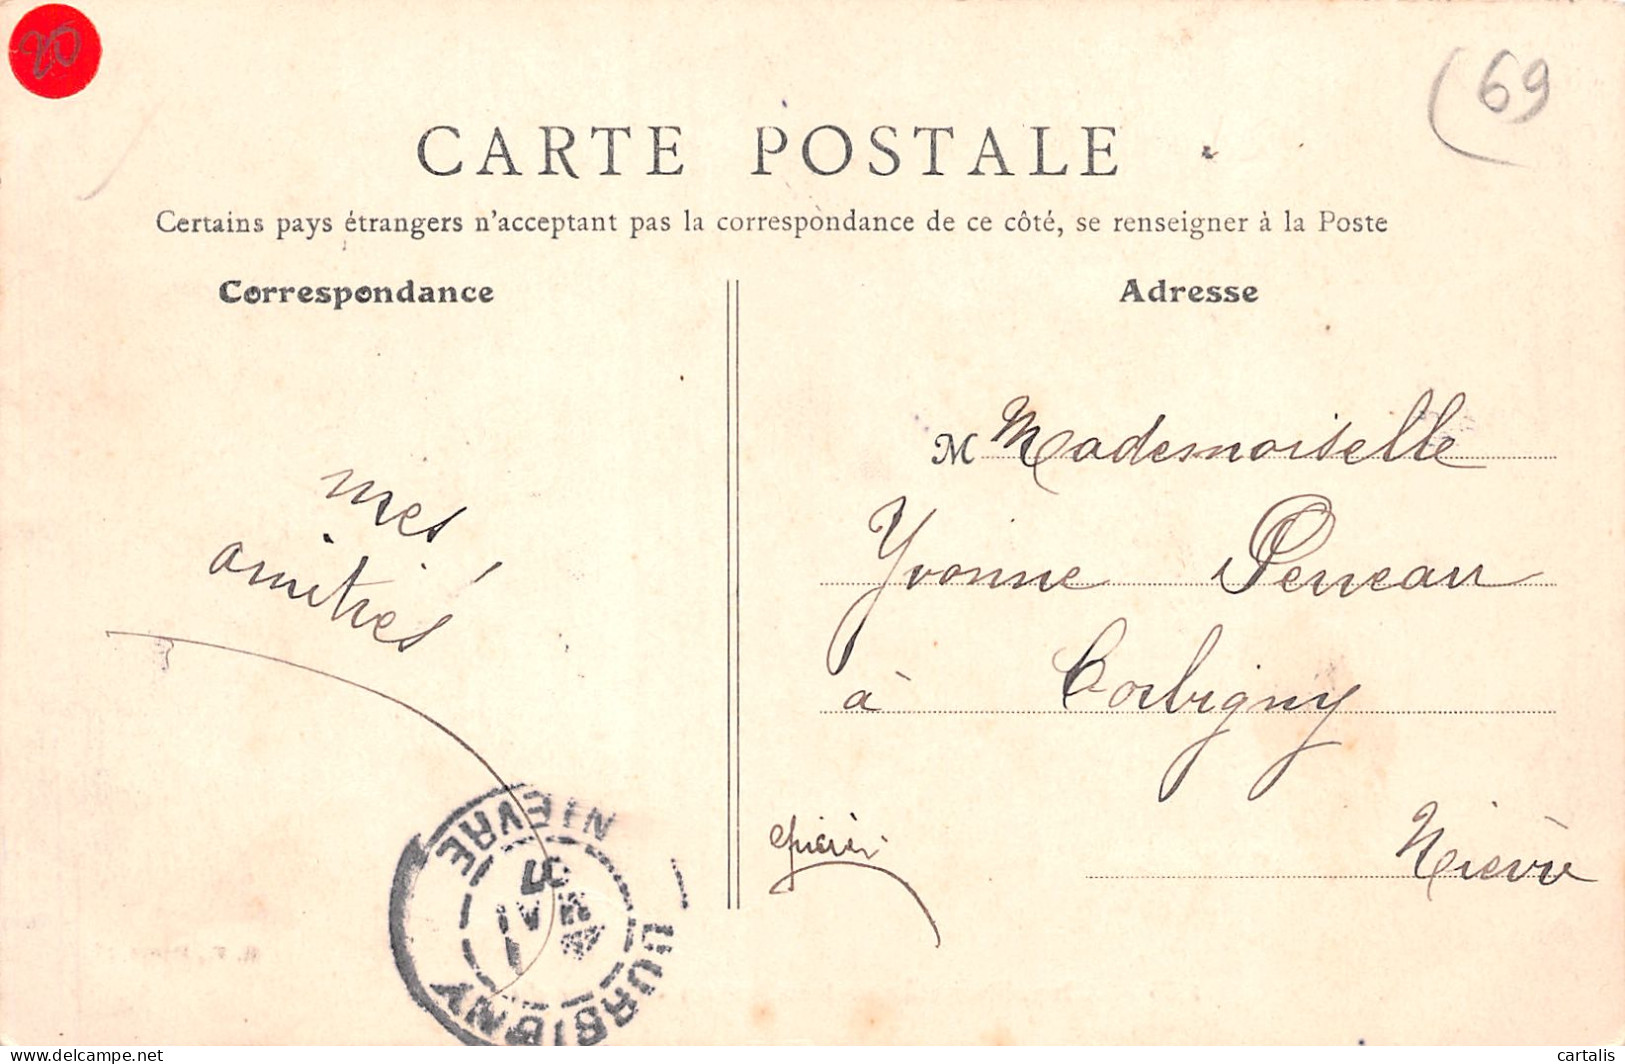 20
(69
CARTE POSTALE
Certains pays étrangers n'acceptant pas la correspondance de ce côté, se renseigner à la Poste
Correspondance
Adresse
mes
amitiés
M Mademoiselle
Yvonne Perreau
à Corbigny
Nièvre
NIEVRE
MAI
CORBIGNY
www.delcampe.net
cartalis